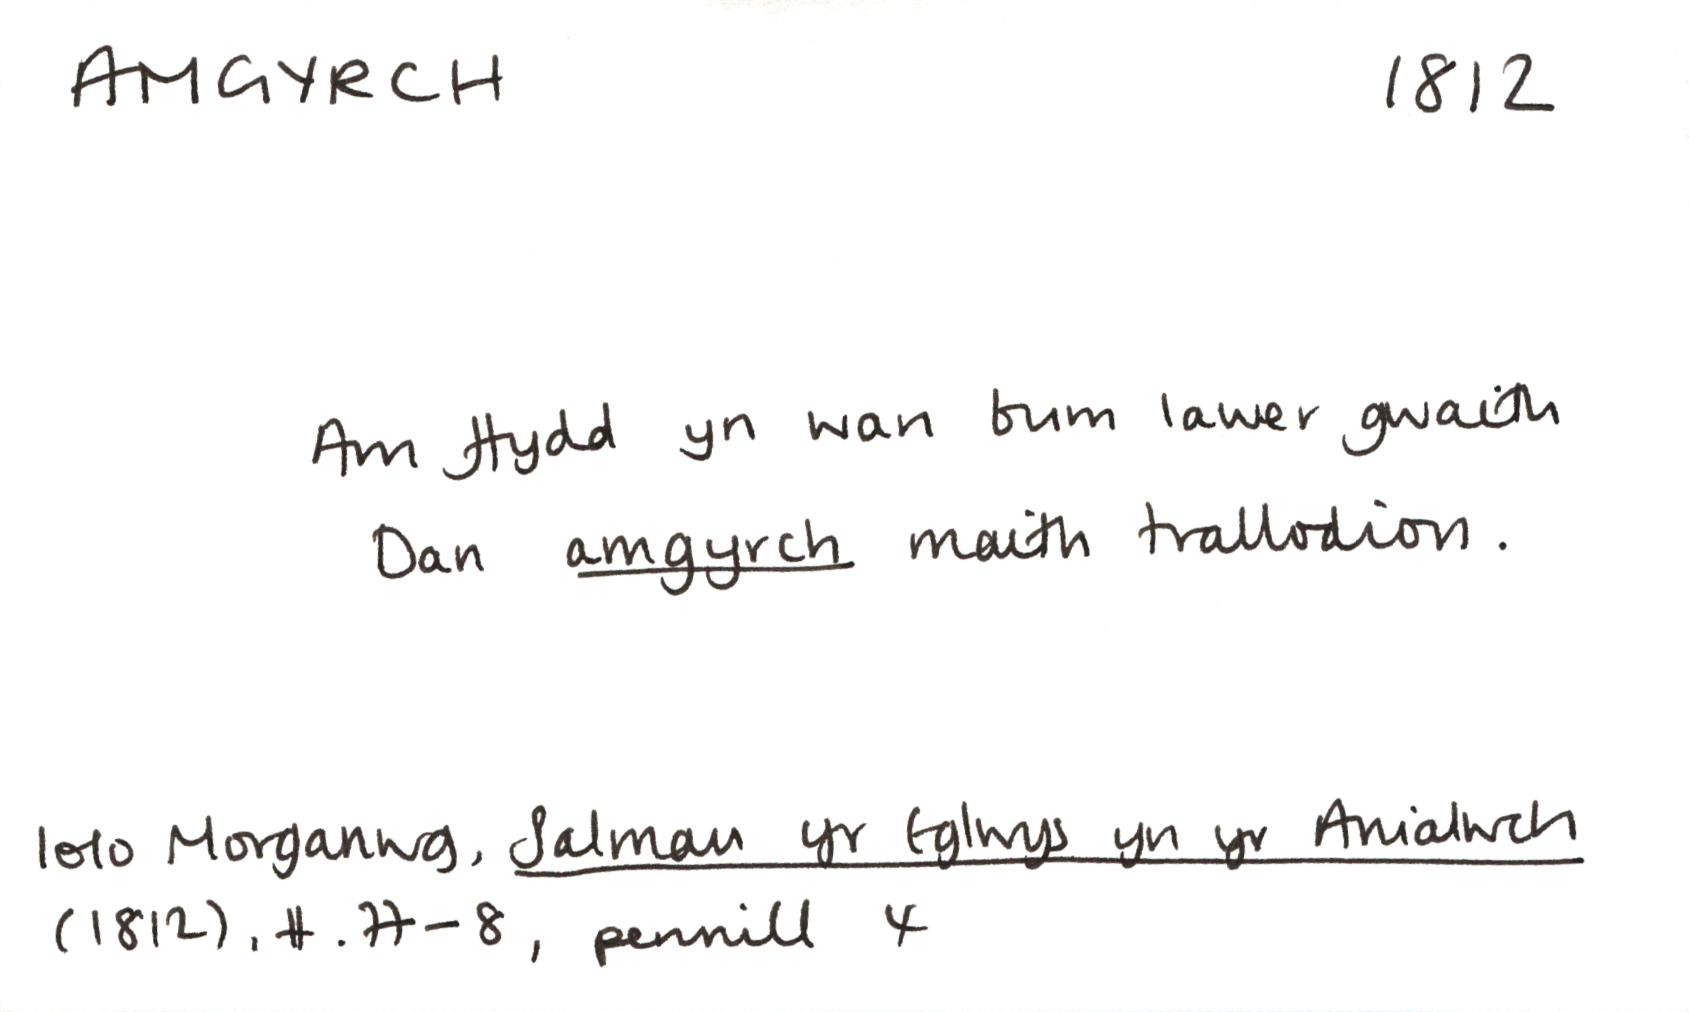 AMGYRCH 1812
Am ffydd yn wan bum lawer gwaith
Dan amgyrch maith trallodion.
Iolo Morganwg, Salmau yr Eglwys yn yr Anialwch
(1812), tt. 77-8, pennill 4